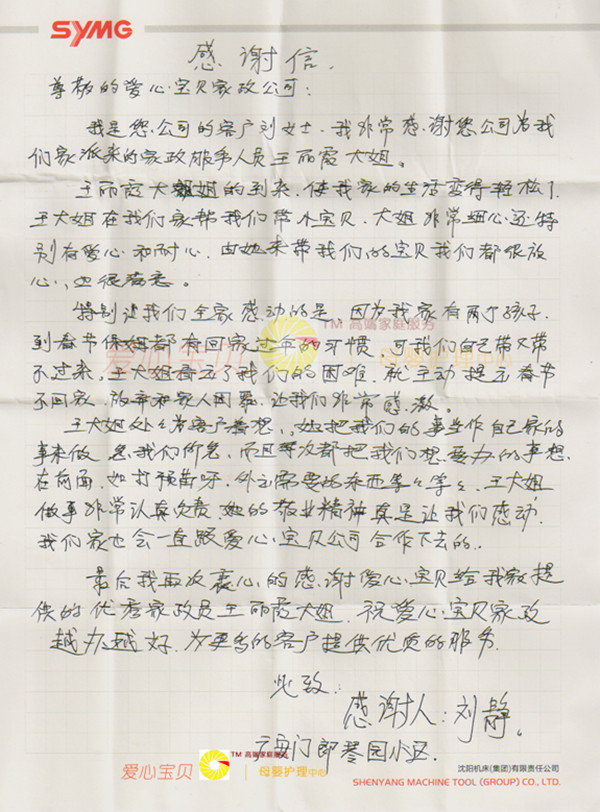 SYMG
感谢信.
尊敬的爱心宝贝家政公司:
我是您公司的客户刘女士.我非常感谢您公司为我
们家派来的家政服务人员王丽霞大姐。
王丽霞大姐的到来,使我家的生活变得轻松了.
王大姐在我们家帮我们带小宝贝.大姐非常细心还特
别有爱心和耐心,由她来带我们的宝贝我们都很放
心,也很满意。
特别让我们全家感动的是,因为我家有两个孩子.
TM 高端家庭服务
到春节保姆都有回家过年的习惯,可我们自己带又带
爱心宝贝 母婴护理中心
不过来,王大姐看出了我们的困难,就主动提出春节
不回家,放弃和家人团聚,让我们非常感激。
王大姐处处为客户着想,她把我们的事当作自己家的
事来做 急我们所急,而且每次都把我们想要办的事想
在前面,如打预防呀,外出需要的东西等々等々,王大姐
做事非常认真负责,她的敬业精神真是让我们感动,
我们家也会一直跟爱心宝贝公司合作下去的.
最后我再次衷心的感谢爱心宝贝给我家提
供的优秀家政员王丽霞大姐,祝爱心宝贝家政
越办越好,为更多的客户提供优质的服务.
此致:
感谢人:刘静。
园小区.
爱心宝贝 TM 高端家庭服务 母婴护理中心
沈阳机床(集团)有限责任公司
SHENYANG MACHINE TOOL (GROUP) CO., LTD.